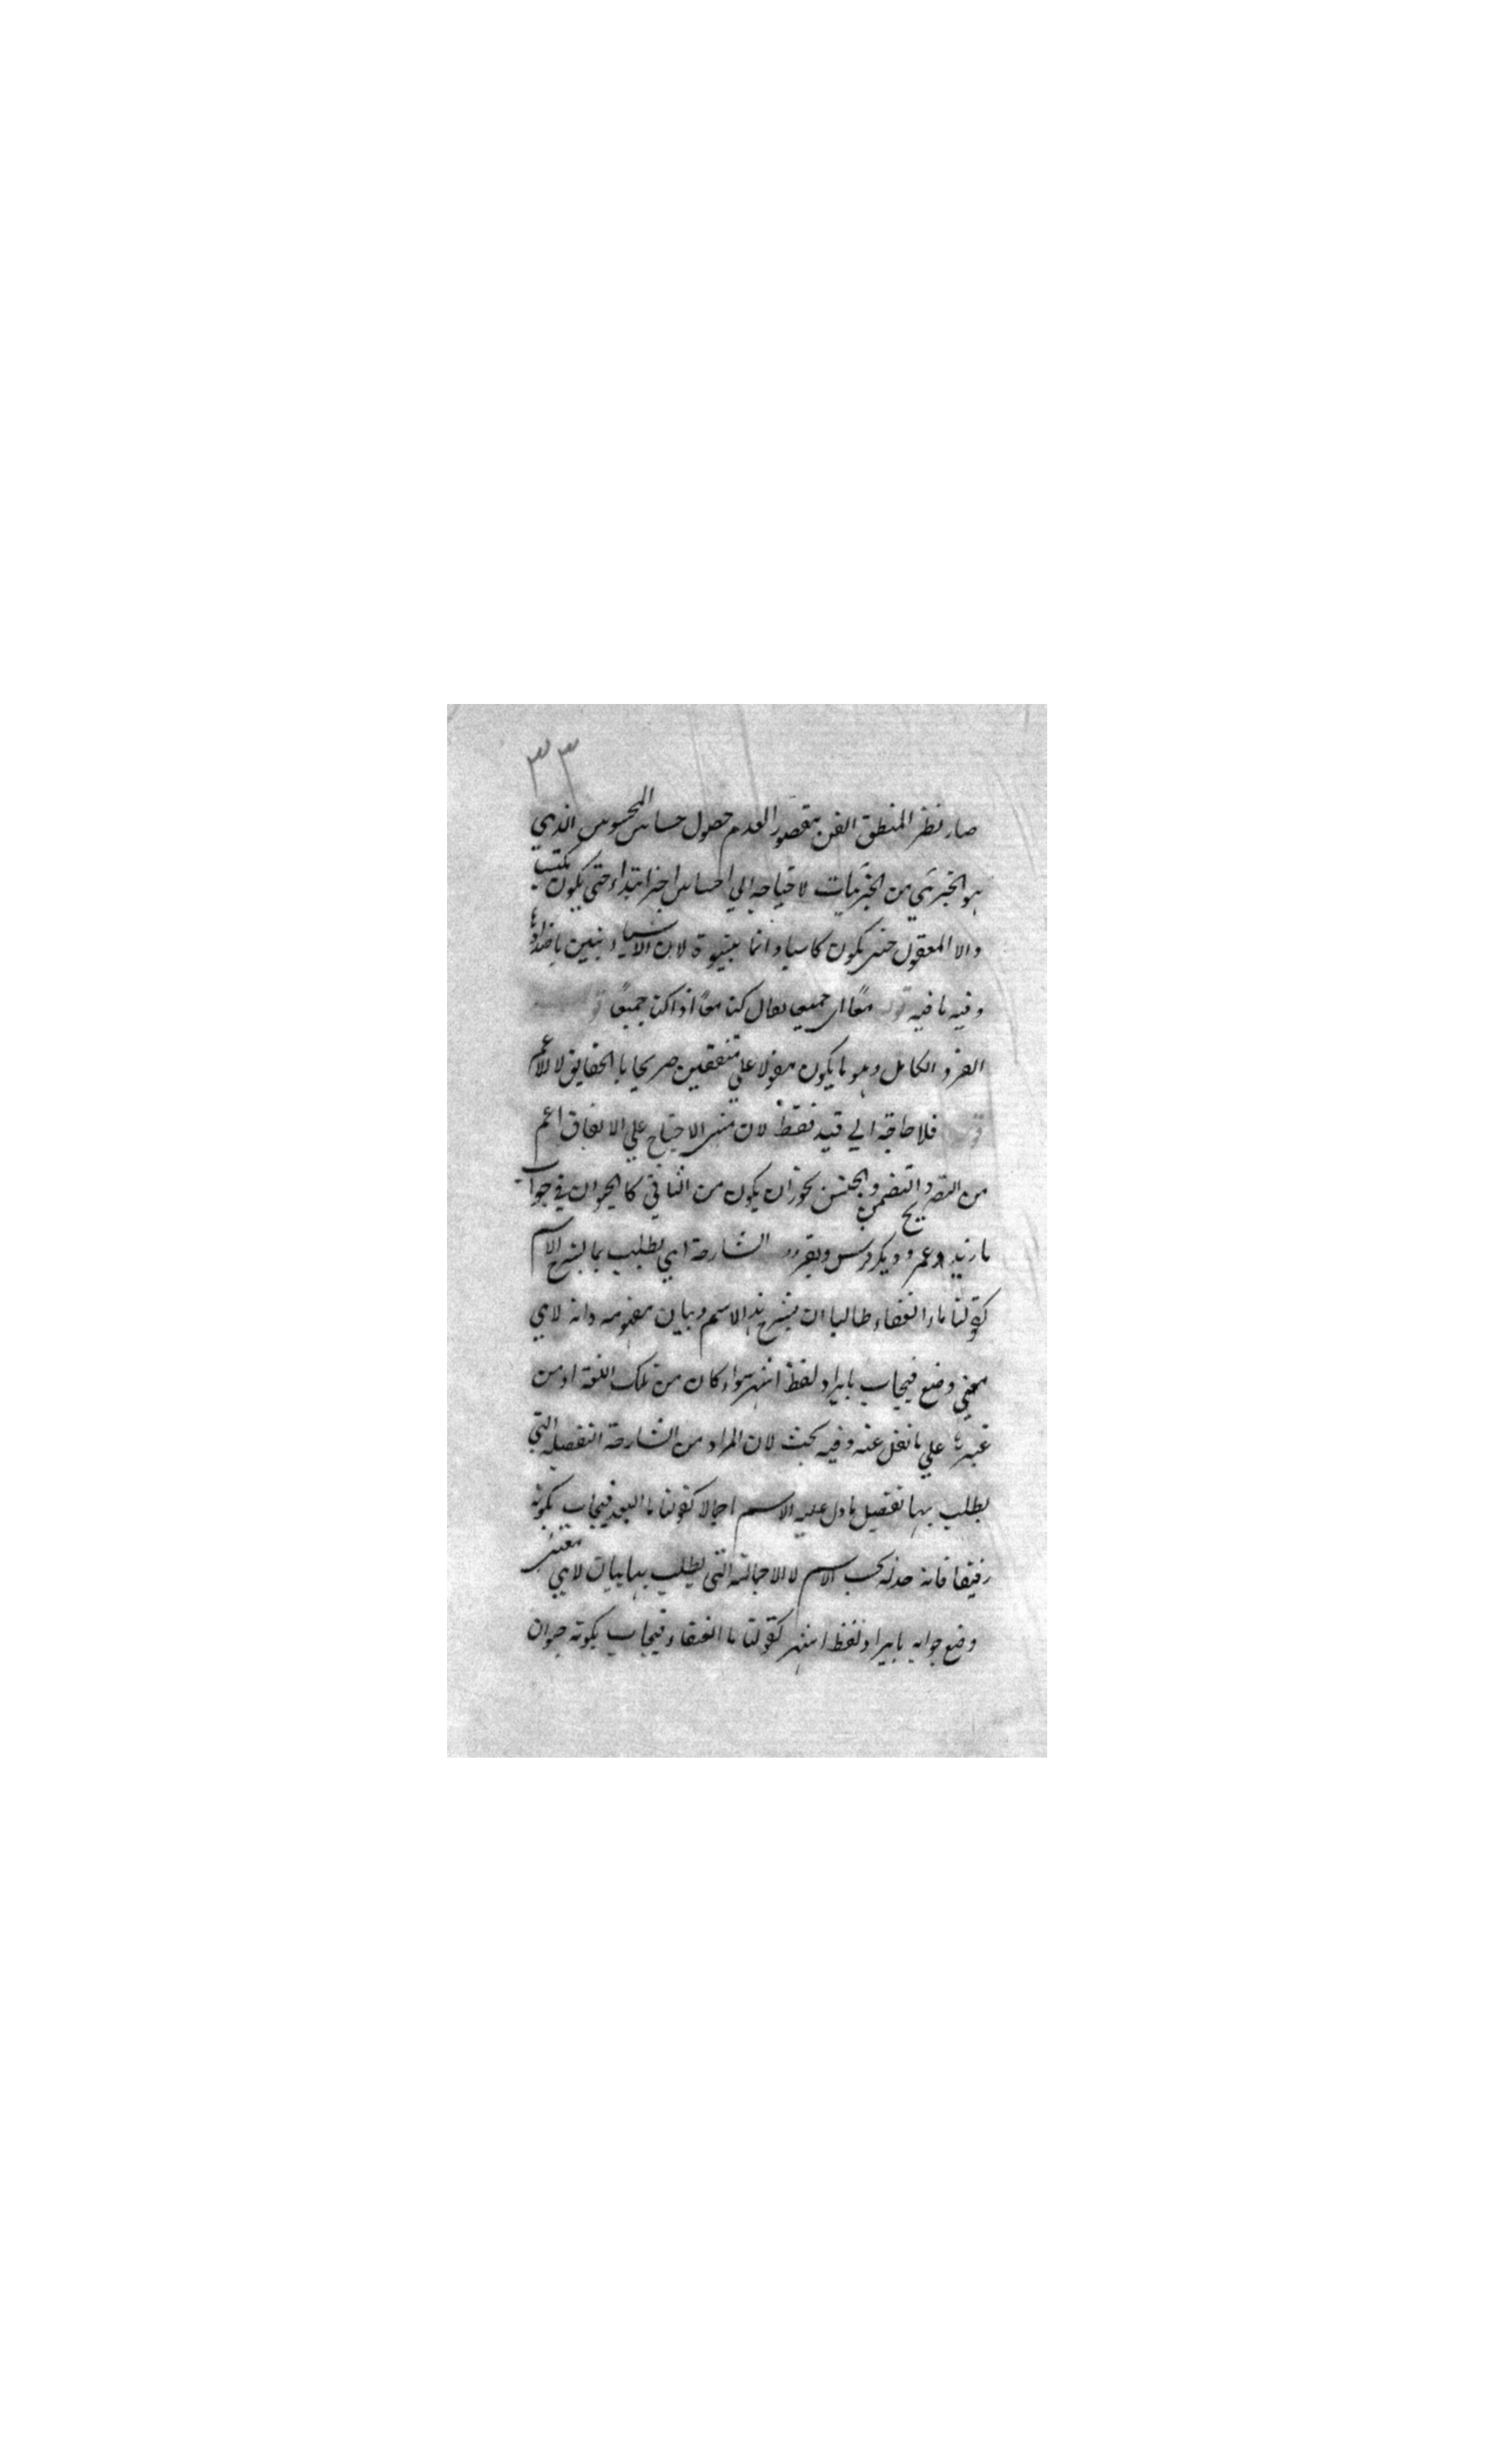 ٣٣
صار نظر المنطق الفن مقصور العدم حصول احساس المحسوس الذي
هو الجزئي من الجزئيات لاحتياجه الي احساس اخر ابتداء حتى يكون مكتسب
والا المعقول حتى يكون كاسبا وانما لان الاشياء تتبين باضدادها
وفيه ما فيه قوله معًا اي جميعا يقال كنا معًا اذا كنا جميعًا قوله
الفرد الكامل وهو ما يكون مقولا علي متفقين صريحا بالحقايق لا للاعم
قوله فلا حاجة الي قيد فقط لان الاحتياج علي الاتفاق اعم
من التصريح والتضمن والجنس يجوز ان يكون من الثاني كالحيوان في جواب
ما زيد وعمرو وبكر وفرس وبقر الشارحة اي يطلب بما يشرح الاسم
كقولنا ما العنقاء طالبا ان يشرح هذا الاسم وبيان مفهومه وانه لاي
معني وضع فيجاب بايراد لفظ اشهر سواء كان من تلك اللغة او من
غيرها علي ما نقل عنه وفيه بحث لان المراد من الشارحة التفصيلة التي
يطلب بها تفصيل ما دل عليه الاسم اجمالا كقولنا ما البعد فيجاب بكونه
فانه حد له بحسب الاسم لا الاجمالية التي يطلب بها بيان لاي معني
وضع جوابه بايراد لفظ اشهر كقولنا ما العنقاء فيجاب بكونه حيوان